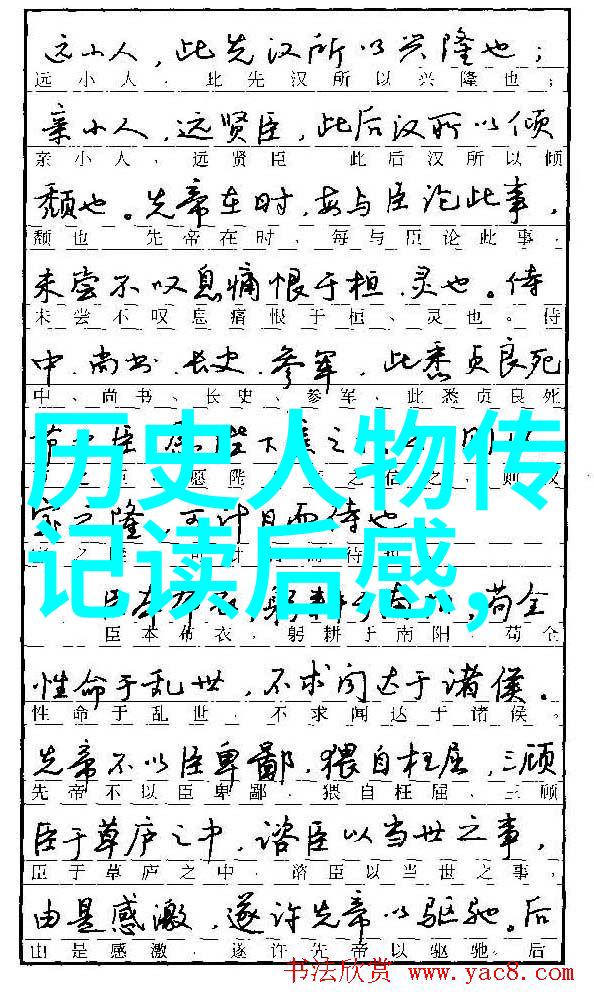 远小人，此先汉所以兴隆也；
远小人，此先汉所以兴隆也；
亲小人，远贤臣，此后汉所以倾
亲小人，远贤臣 此后汉所以倾
颓也。先帝在时，每与臣论此事，
颓也 先帝在时，每与臣论此事，
未尝不叹息痛恨于桓、灵也。侍
未尝不叹息痛恨于桓、灵也。侍
中、尚书、长史、参军，此悉贞良死
中、尚书、长史、参军，此悉贞良死
历史人物传
记读后感,
之隆，可计日而待也
臣本布衣，躬耕于南阳，苟全
性命于乱世，不求闻达于诸侯。
性命于乱世，不求闻达于诸侯。
先帝不以臣卑鄙，猥自枉屈，三顾
先帝不以臣卑鄙，猥自枉屈、三顾
臣于草庐之中，谘臣以当世之事，
臣于草庐之中，谘臣以当世之事，
由是感激，遂许先帝以驱驰。后
由是感激，遂许先帝以驱驰。后
书法欣赏 www.yac8.com